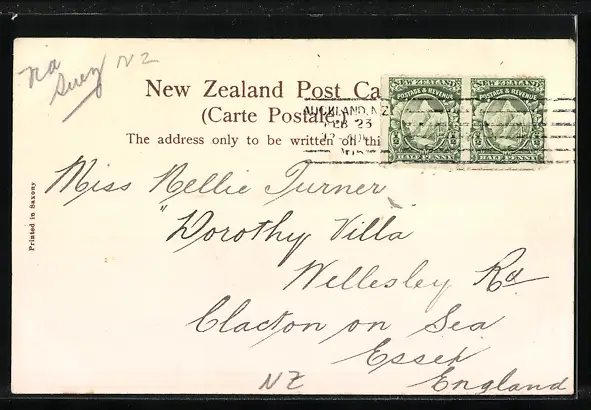 via Suez NZ
New Zealand Post Ca
(Carte Postale
The address only to be written on thi
NEW ZEALAND
POSTAGE & REVENUE
HALF PENNY
NEW ZEALAND
POSTAGE & REVENUE
HALF PENNY
AUCKLAND, N.Z.
FEB 23
Printed in Saxony
Miss Nellie Turner
"Dorothy Villa
Wellesley Rd
Clacton on Sea
Essex
NZ
England